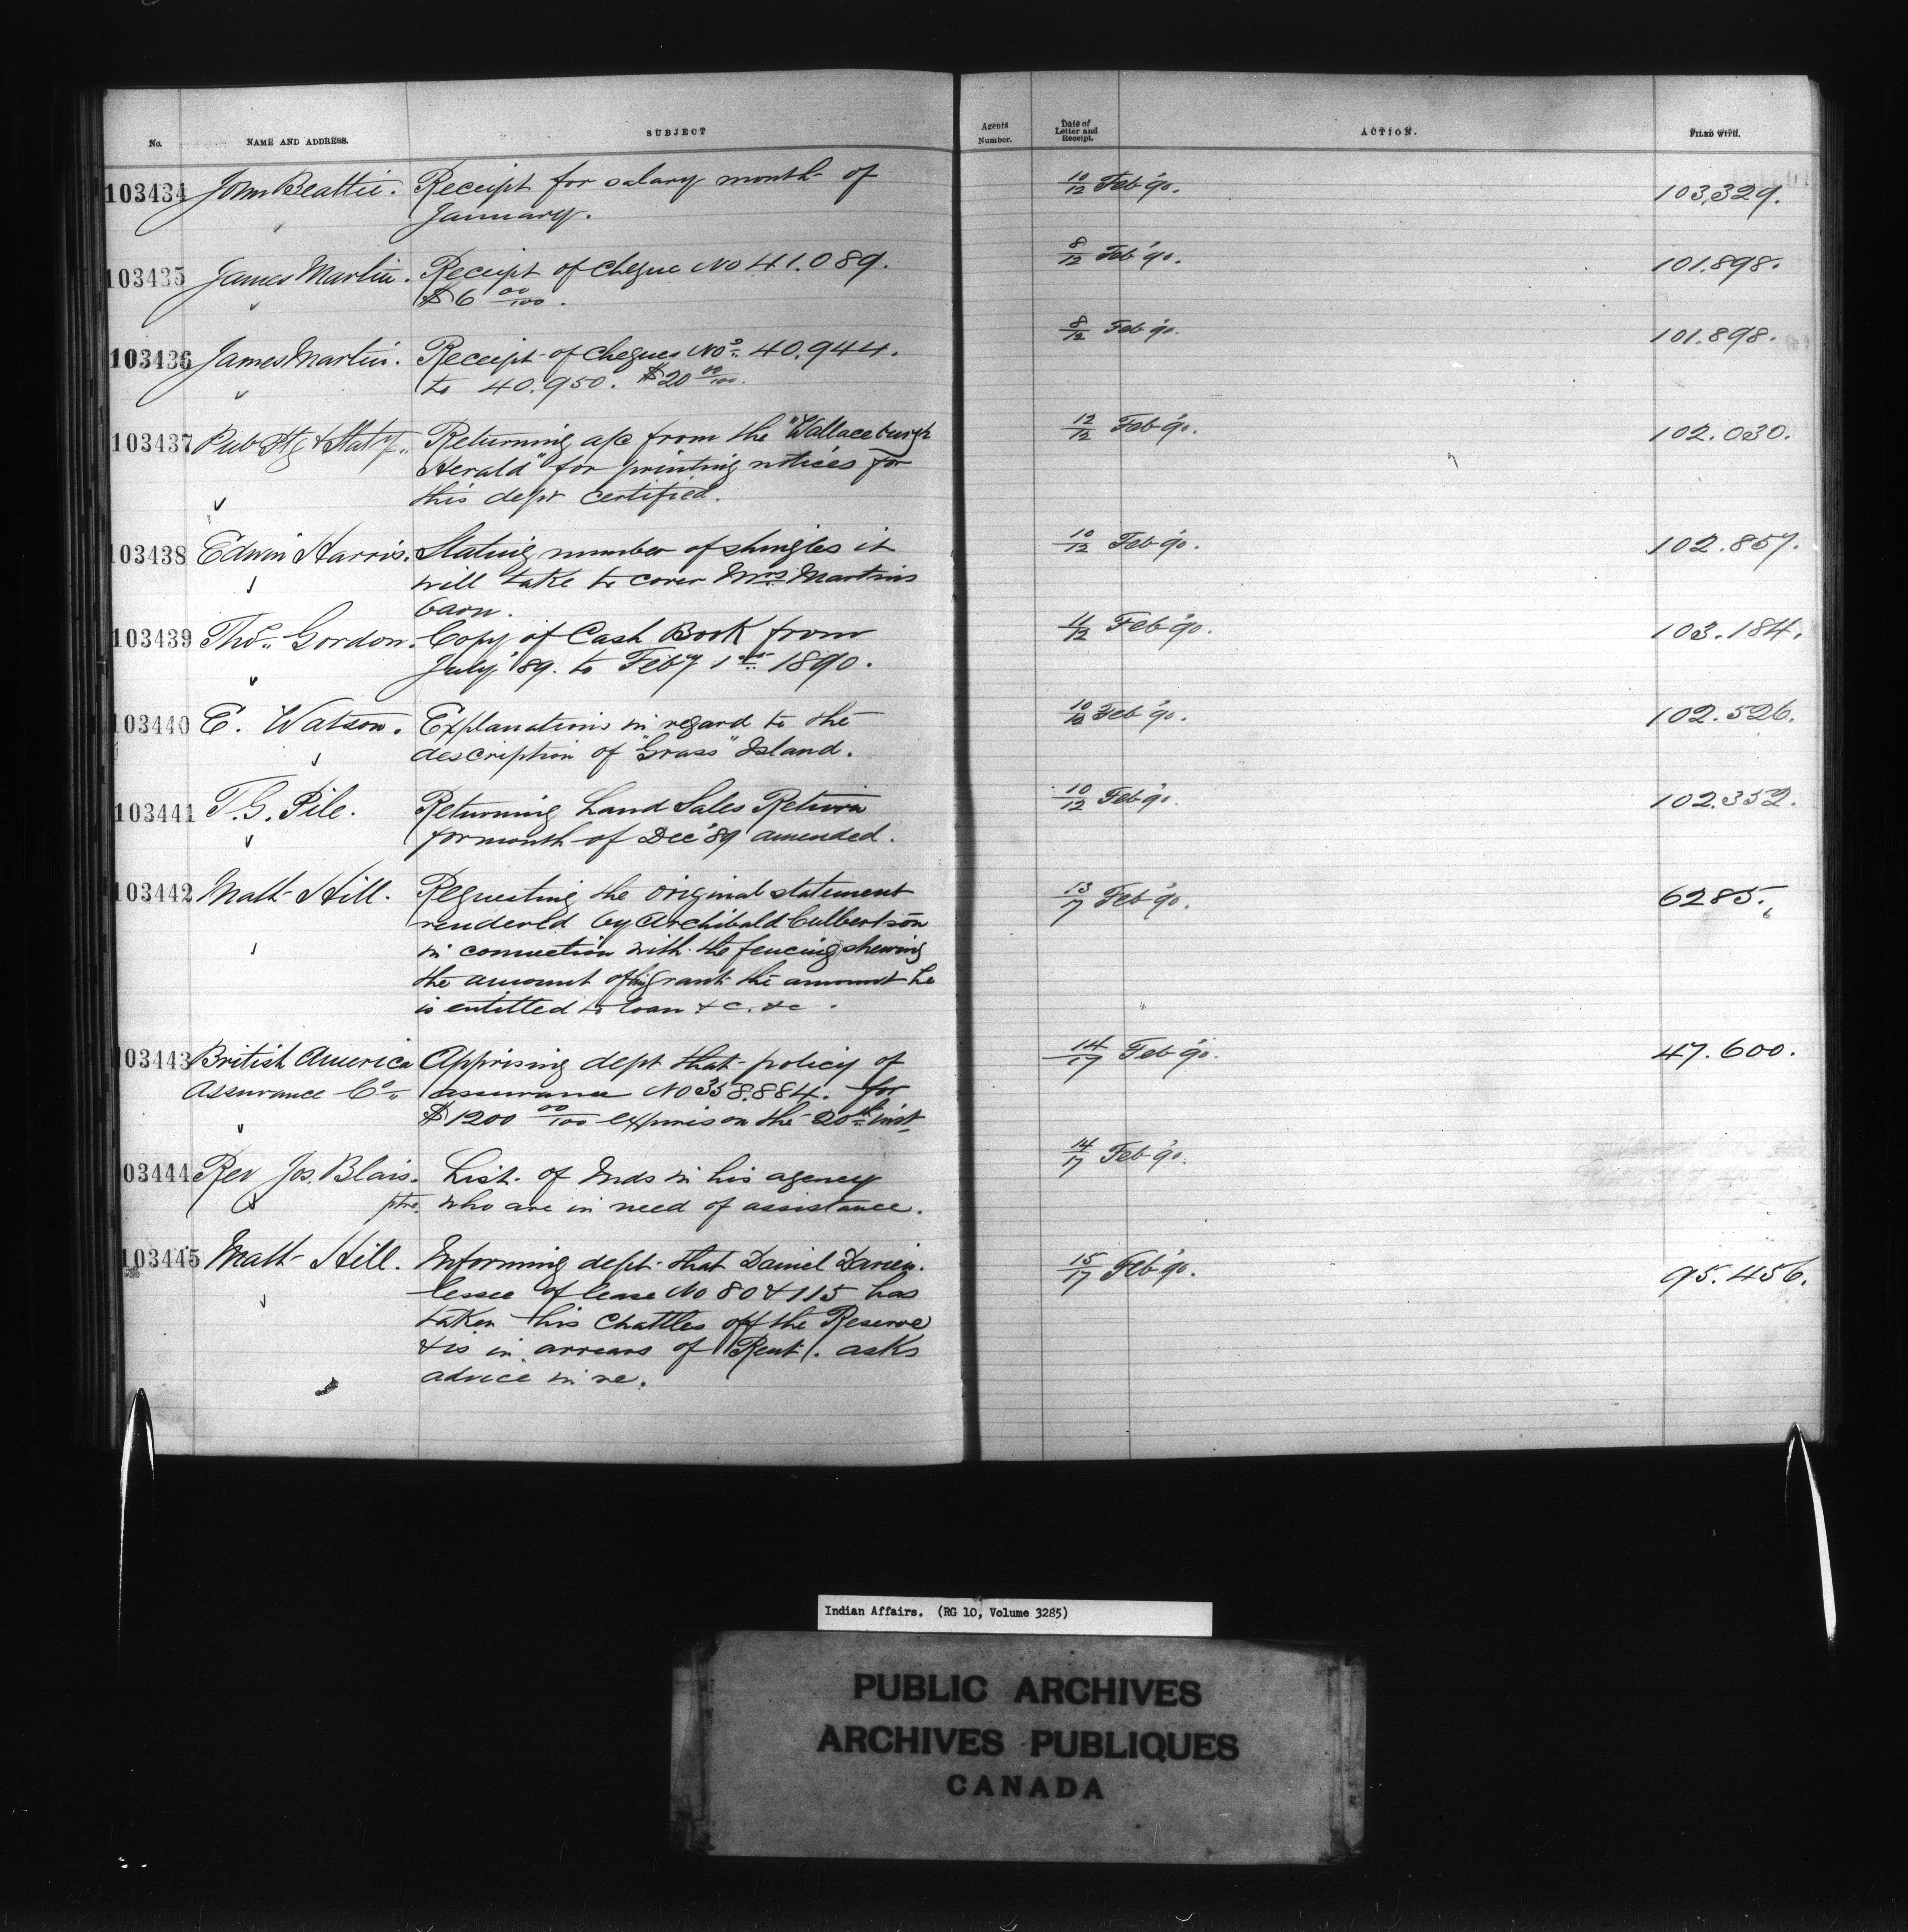 No. NAME AND ADDRESS. SUBJECT Agents Number. Date of Letter and Receipt. ACTION. FILED WITH.
103434 John Beattie. Receipt for salary month of 10/12 Feb '90. 103,329.
January.
103435 James Martin. Receipt of cheque No 41.089. 8/12 Feb '90. 101.898.
$6 00/100.
103436 James Martin. Receipt of cheques Nos. 40.944. 8/12 Feb '90. 101.898.
to 40.950. $20 00/100.
103437 Pub Ptg & Staty. Returning a/c from the "Wallaceburgh 12/12 Feb '90. 102.030.
Herald" for printing notices for
this dept certified.
103438 Edwin Harris. Stating number of shingles it 10/12 Feb '90. 102.857.
will take to cover Mrs Martins
barn.
103439 Thos. Gordon. Copy of Cash Book from 11/12 Feb '90. 103.184.
July '89. to Feby 1st 1890.
103440 E. Watson. Explanations in regard to the 10/12 Feb '90. 102.526.
description of "Grass" Island.
103441 T. G. Pile. Returning Land Sales Return 10/12 Feb '90. 102.352.
for month of Dec '89 amended.
103442 Matt Hill. Requesting the original statement 13/17 Feb '90. 6285.
rendered by Archibald Culbertson
in connection with the fencing shewing
the amount of his grant the amount he
is entitled to loan &c. &c.
103443 British America Apprising dept that policy of 14/17 Feb '90. 47.600.
Assurance Co. assurance No 358.884. for
$1200 00/100 expires on the 20th inst.
03444 Rev Jos. Blais. List of Inds in his agency 14/17 Feb '90.
ptre. who are in need of assistance.
103445 Matt Hill. Informing dept. that Daniel 15/17 Feb '90. 95.456.
lessee of lease No 80 & 115 has
taken his chattles off the Reserve
& is in arrears of Rent. asks
advice in re.
Indian Affairs. (RG 10, Volume 3285)
PUBLIC ARCHIVES
ARCHIVES PUBLIQUES
CANADA